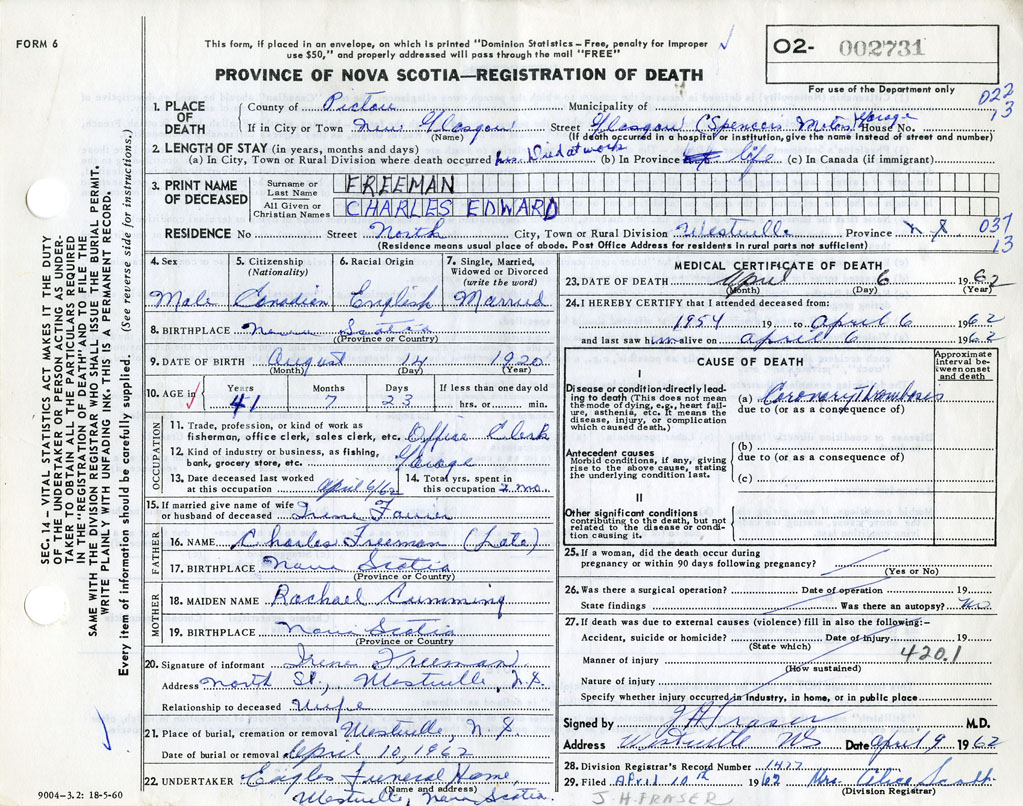 FORM 6
This form, if placed in an envelope, on which is printed "Dominion Statistics – Free, penalty for improper
use $50," and properly addressed will pass through the mail "FREE"
PROVINCE OF NOVA SCOTIA—REGISTRATION OF DEATH
O2- 002731
For use of the Department only
022
13
1. PLACE OF DEATH
County of Pictou Municipality of
If in City or Town New Glasgow Street Glasgow (Spencer's Motors Garage House No.
(If death occurred in a hospital or institution, give the name instead of street and number)
2. LENGTH OF STAY (in years, months and days)
(a) In City, Town or Rural Division where death occurred hrs. Died at work (b) In Province life (c) In Canada (if immigrant)
3. PRINT NAME OF DECEASED
Surname or Last Name FREEMAN
All Given or Christian Names CHARLES EDWARD
RESIDENCE No Street North City, Town or Rural Division Westville Province N S 037
13
(Residence means usual place of abode. Post Office Address for residents in rural parts not sufficient)
4. Sex
Male
5. Citizenship (Nationality)
Canadian
6. Racial Origin
English
7. Single, Married, Widowed or Divorced (write the word)
Married
8. BIRTHPLACE Nova Scotia
(Province or Country)
9. DATE OF BIRTH August 14 1920
(Month) (Day) (Year)
10. AGE in
Years Months Days If less than one day old
41 7 23 hrs. or min.
OCCUPATION
11. Trade, profession, or kind of work as
fisherman, office clerk, sales clerk, etc. Office Clerk
12. Kind of industry or business, as fishing,
bank, grocery store, etc. Garage
13. Date deceased last worked
at this occupation April 6/62
14. Total yrs. spent in
this occupation 2 mo.
15. If married give name of wife
or husband of deceased Irene
FATHER
16. NAME Charles Freeman (Late)
17. BIRTHPLACE Nova Scotia
(Province or Country)
MOTHER
18. MAIDEN NAME Rachael Cumming
19. BIRTHPLACE Nova Scotia
(Province or Country)
20. Signature of informant Irene Freeman
Address North St., Westville, N.S.
Relationship to deceased Wife
21. Place of burial, cremation or removal Westville, N.S
Date of burial or removal April 10, 1962
22. UNDERTAKER Eagles Funeral Home,
(Name and address)
Westville, Nova Scotia.
MEDICAL CERTIFICATE OF DEATH
23. DATE OF DEATH April 6 1962
(Month) (Day) (Year)
24. I HEREBY CERTIFY that I attended deceased from:
1954 19 to April 6 1962
and last saw him alive on April 6 1962
CAUSE OF DEATH
Approximate interval between onset and death
I
Disease or condition directly leading
to death (This does not mean
the mode of dying, e.g., heart failure,
asthenia, etc. It means the
disease, injury, or complication
which caused death.)
(a) Coronary Thrombosis
due to (or as a consequence of)
Antecedent causes
Morbid conditions, if any, giving
rise to the above cause, stating
the underlying condition last.
(b)
due to (or as a consequence of)
(c)
II
Other significant conditions
contributing to the death, but not
related to the disease or condition
causing it.
25. If a woman, did the death occur during
pregnancy or within 90 days following pregnancy?
(Yes or No)
26. Was there a surgical operation? Date of operation 19
State findings Was there an autopsy? No
27. If death was due to external causes (violence) fill in also the following:–
Accident, suicide or homicide? Date of injury 19
(State which)
420.1
Manner of injury
(How sustained)
Nature of injury
Specify whether injury occurred in industry, in home, or in public place
Signed by J H Fraser M.D.
Address Westville NS Date April 9 1962
28. Division Registrar's Record Number 1477
29. Filed April 10th 1962 Mrs. Alice
(Division Registrar)
J.H.FRASER
SEC. 14 – VITAL STATISTICS ACT MAKES IT THE DUTY
OF THE UNDERTAKER OR PERSON ACTING AS UNDER-
TAKER TO OBTAIN ALL THE PARTICULARS REQUIRED
IN THE "REGISTRATION OF DEATH" AND TO FILE THE
SAME WITH THE DIVISION REGISTRAR WHO SHALL ISSUE THE BURIAL PERMIT.
WRITE PLAINLY WITH UNFADING INK. THIS IS A PERMANENT RECORD.
Every item of information should be carefully supplied. (See reverse side for instructions.)
9004–3.2: 18-5-60